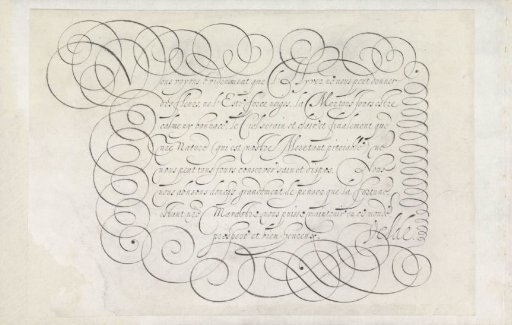 Nous voyons evidemment que l'Hyver ne nous peut donner
des fleurs, ne l'Esté force neiges, la Mer tousjours estre
calme ny bonnace, le Ciel serain et clair et finalement que
Nature (qui est nostre Mere tant prevoiable) ne
nous peut tous jours conserver sain et dispos. Nous
nous abusons doncq grandement de penser que la fortune
estant une Marastre nous puisse maintenir en ce monde
prosperes et bien heureux.
Velde.